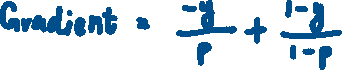 Gradient = -y/p + 1-y/1-p